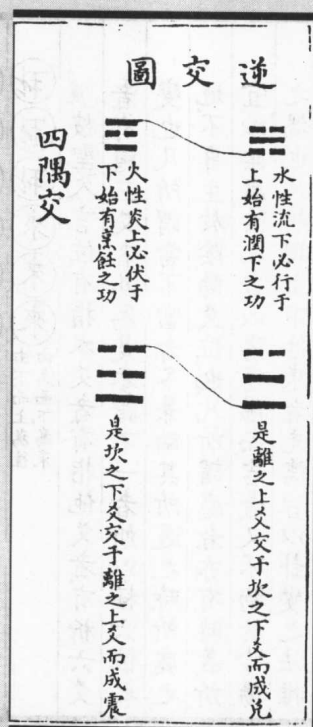 逆交圖
水性流下必行于
上始有潤下之功
火性炎上必伏于
下始有烹飪之功
四隅交
是離之上爻交于坎之下爻而成兌
是坎之下爻交于離之上爻而成震